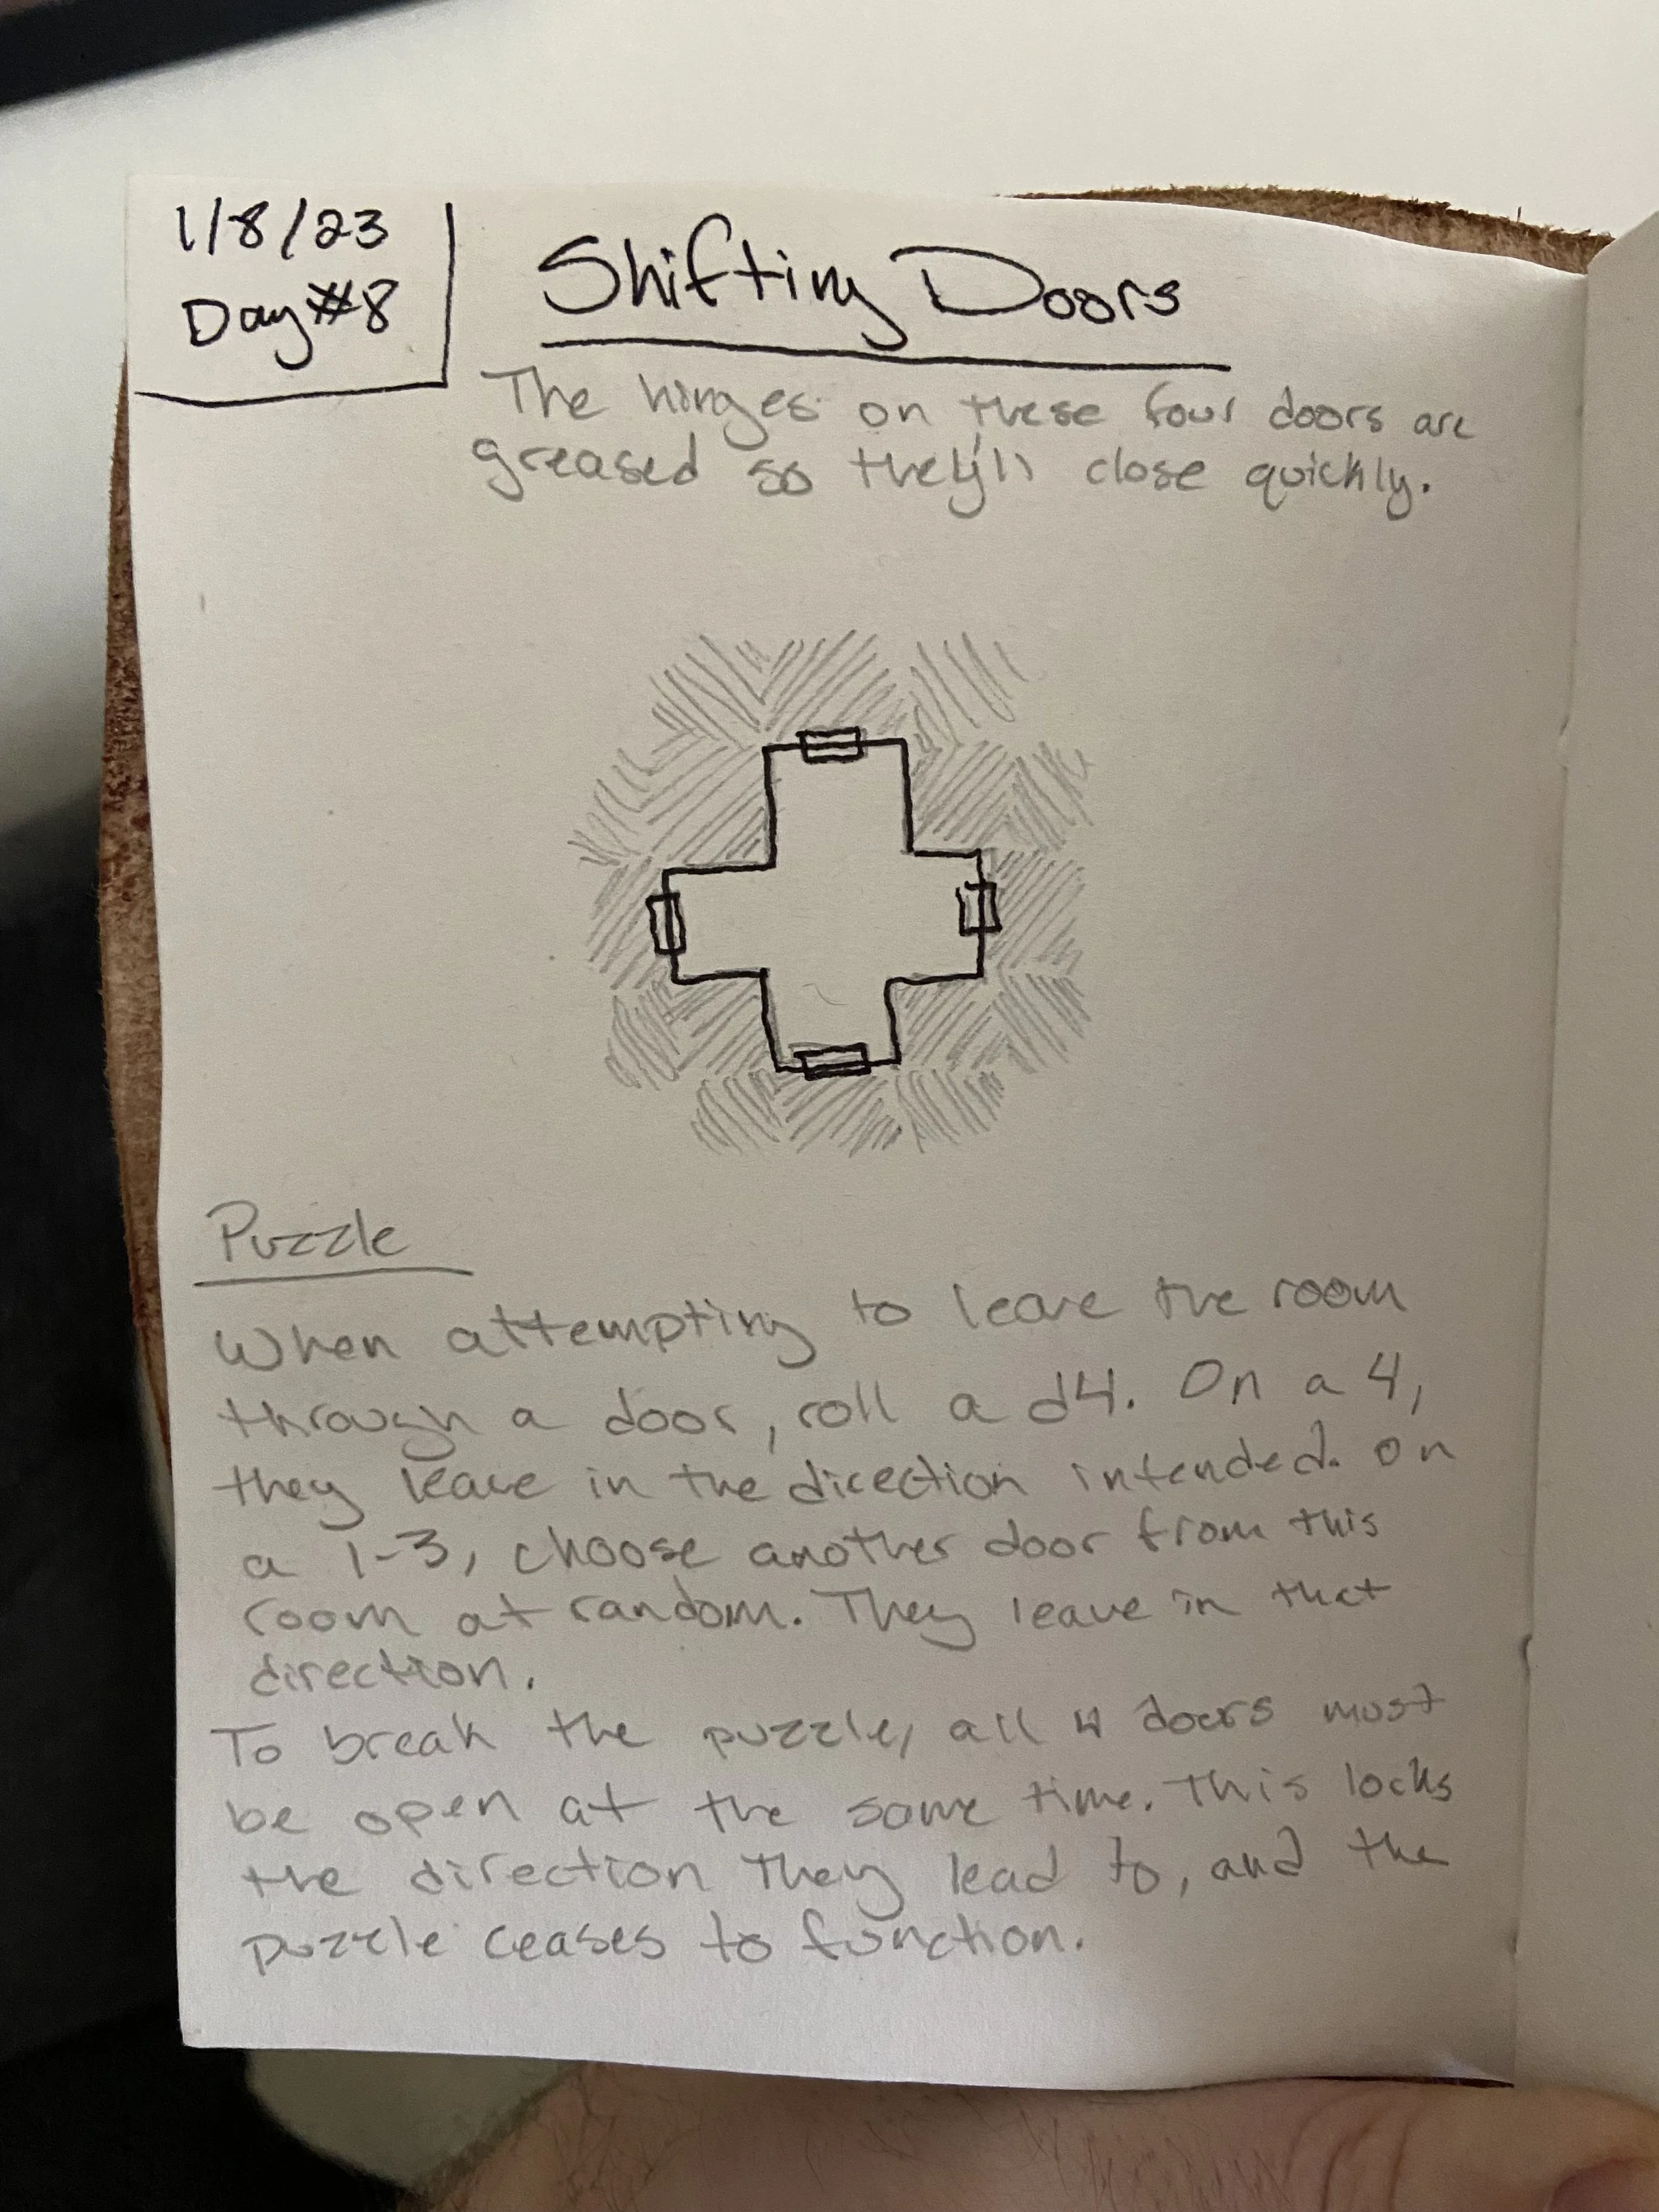 1/8/23
Day #8
Shifting Doors
The hinges on these four doors are
greased so they'll close quickly.
Puzzle
When attempting to leave the room
through a door, roll a d4. On a 4,
they leave in the direction intended. On
a 1-3, choose another door from this
room at random. They leave in that
direction.
To break the puzzle, all 4 doors must
be open at the same time. This locks
the direction they lead to, and the
puzzle ceases to function.